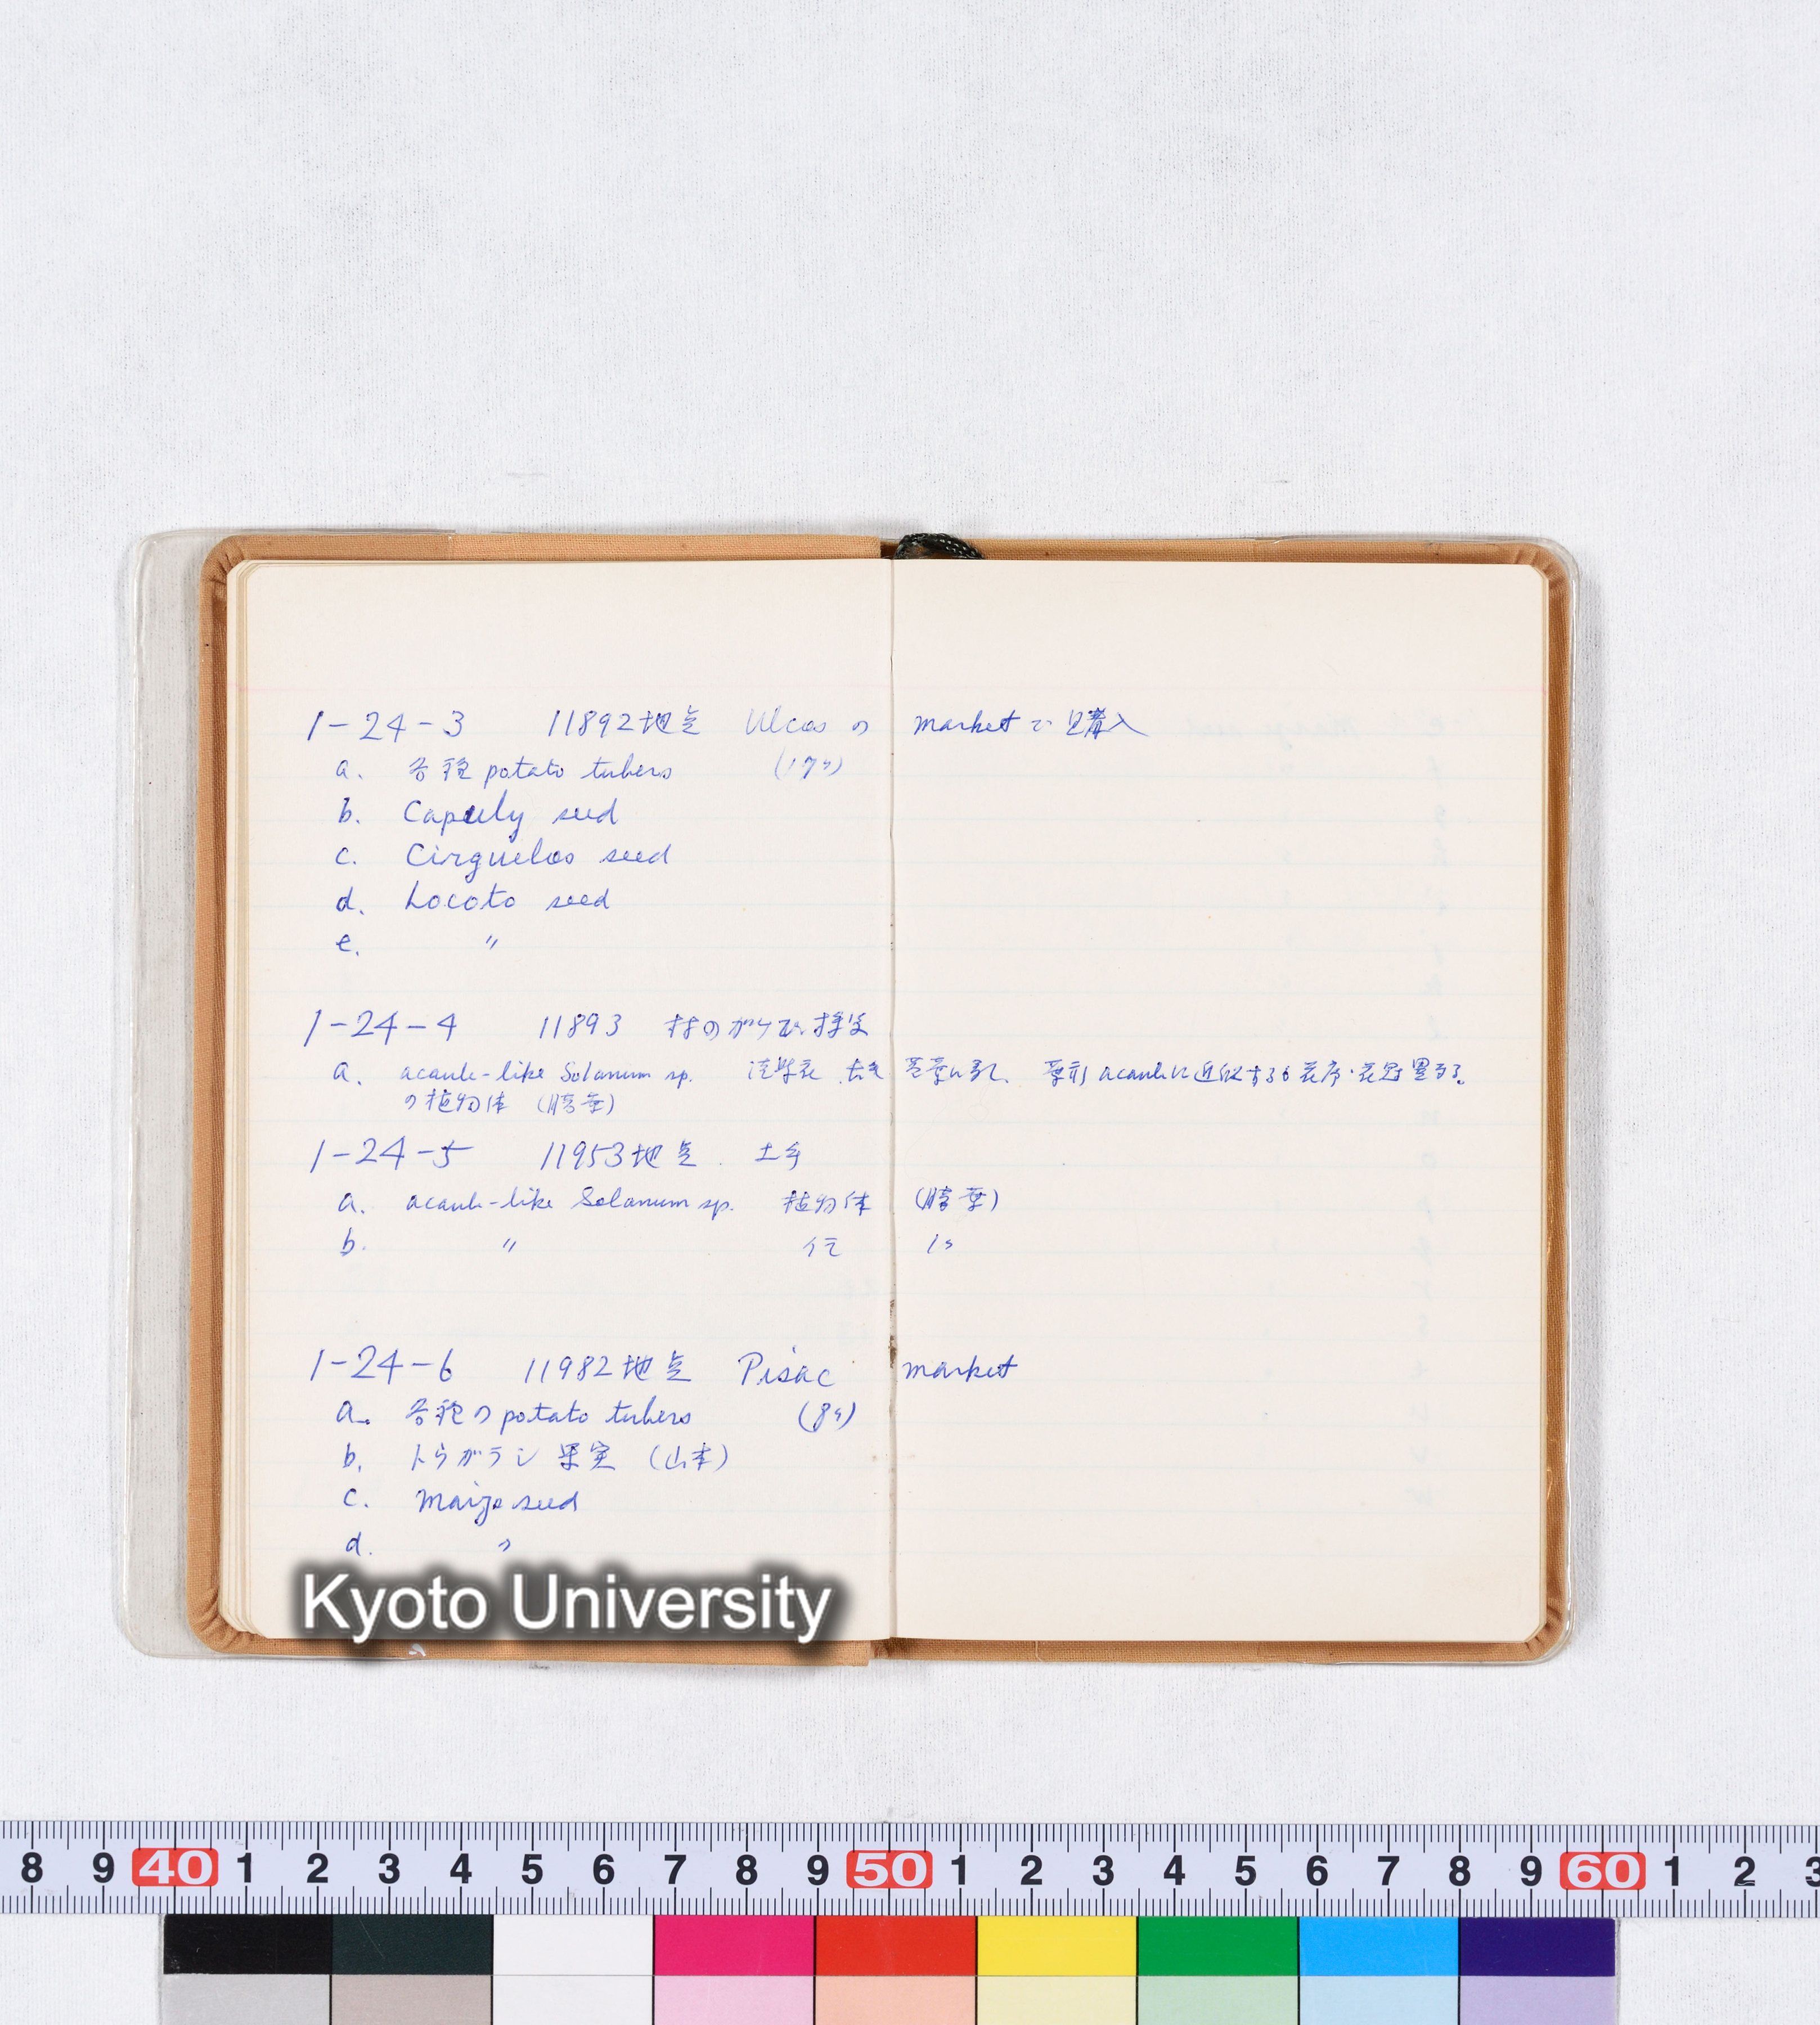 1-24-3 11892地点 Ulcos の market で購入
a. 各種 potato tubers (17ヶ)
b. Capuly seed
c. Cirguelos seed
d. Locoto seed
e. 〃
1-24-4 11893 村の
a. acaule-like Solanum sp. 葉形 acauleに近似するも花序・花冠異る。
の植物体 (腊葉)
1-24-5 11953地点
a. acaule-like Solanum sp. 植物体 (腊葉)
b. 〃
1-24-6 11982地点 Pisac market
a. 各種の potato tubers (8ヶ)
b. トウガラシ果実 (山本)
c. Maize seed
d. 〃
Kyoto University
8 9 40 1 2 3 4 5 6 7 8 9 50 1 2 3 4 5 6 7 8 9 60 1 2 3